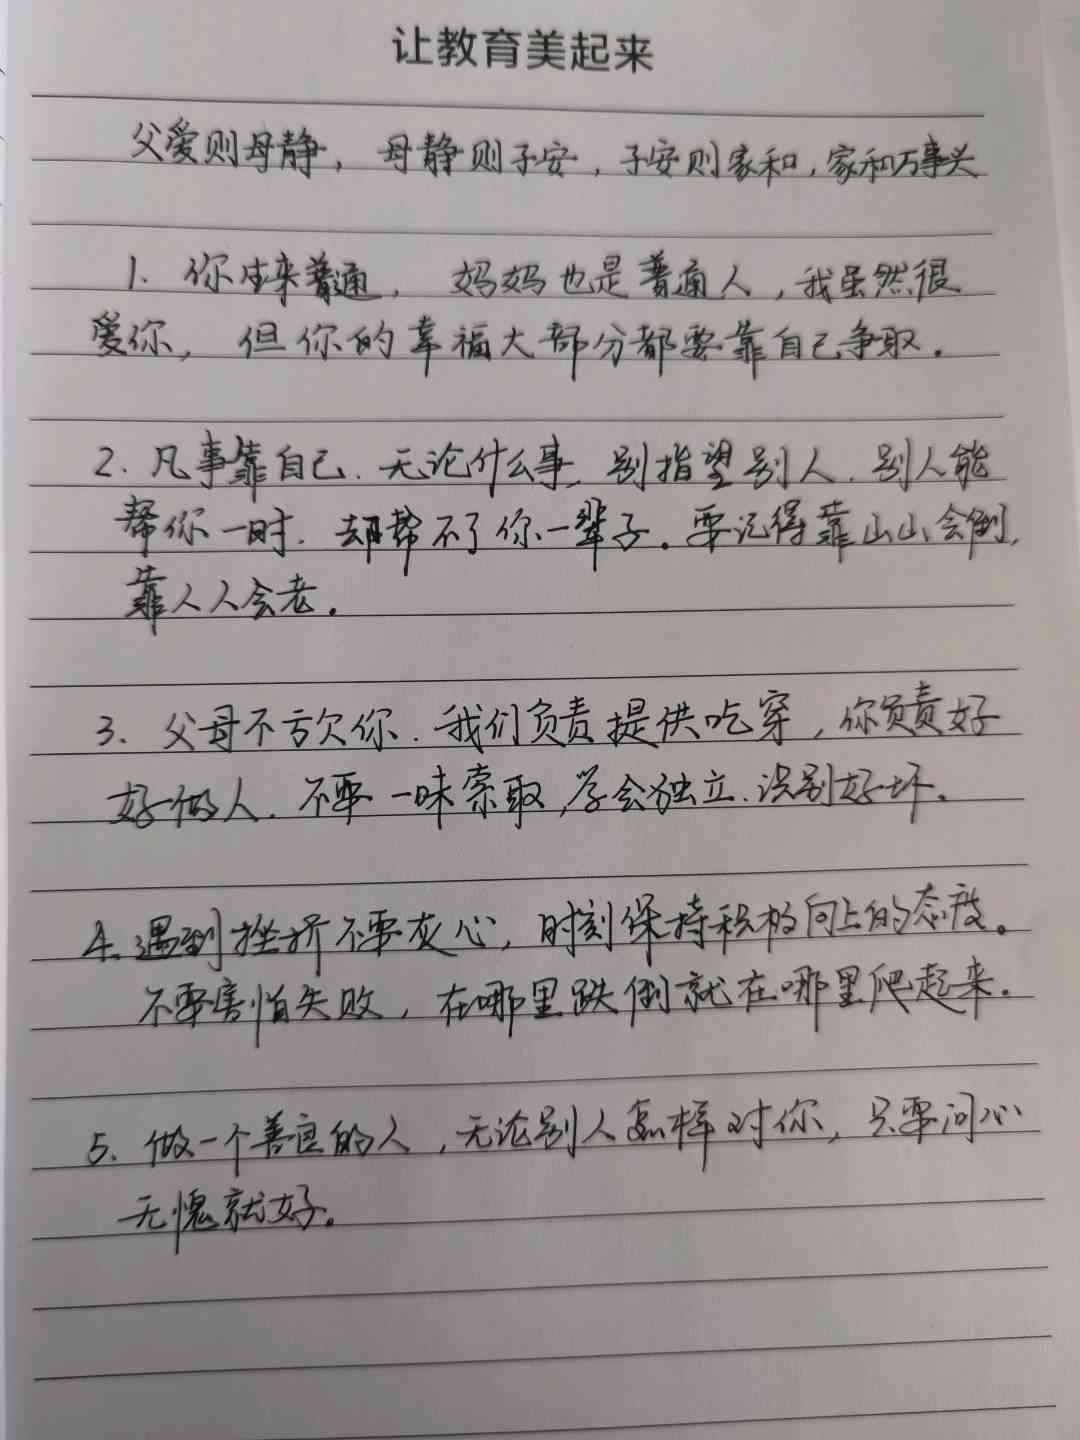 让教育美起来
父爱则母静，母静则子安，子安则家和，家和万事兴
1. 你生来普通，妈妈也是普通人，我虽然很
爱你，但你的幸福大部分都要靠自己争取。
2. 凡事靠自己.无论什么事,别指望别人.别人能
帮你一时.却帮不了你一辈子。要记得靠山山会倒,
靠人人会老。
3. 父母不亏欠你.我们负责提供吃穿，你负责好
好做人.不要一味索取,学会独立.识别好坏。
4. 遇到挫折不要灰心，时刻保持积极向上的态度。
不要害怕失败，在哪里跌倒就在哪里爬起来.
5. 做一个善良的人，无论别人怎样对你，只要问心
无愧就好。